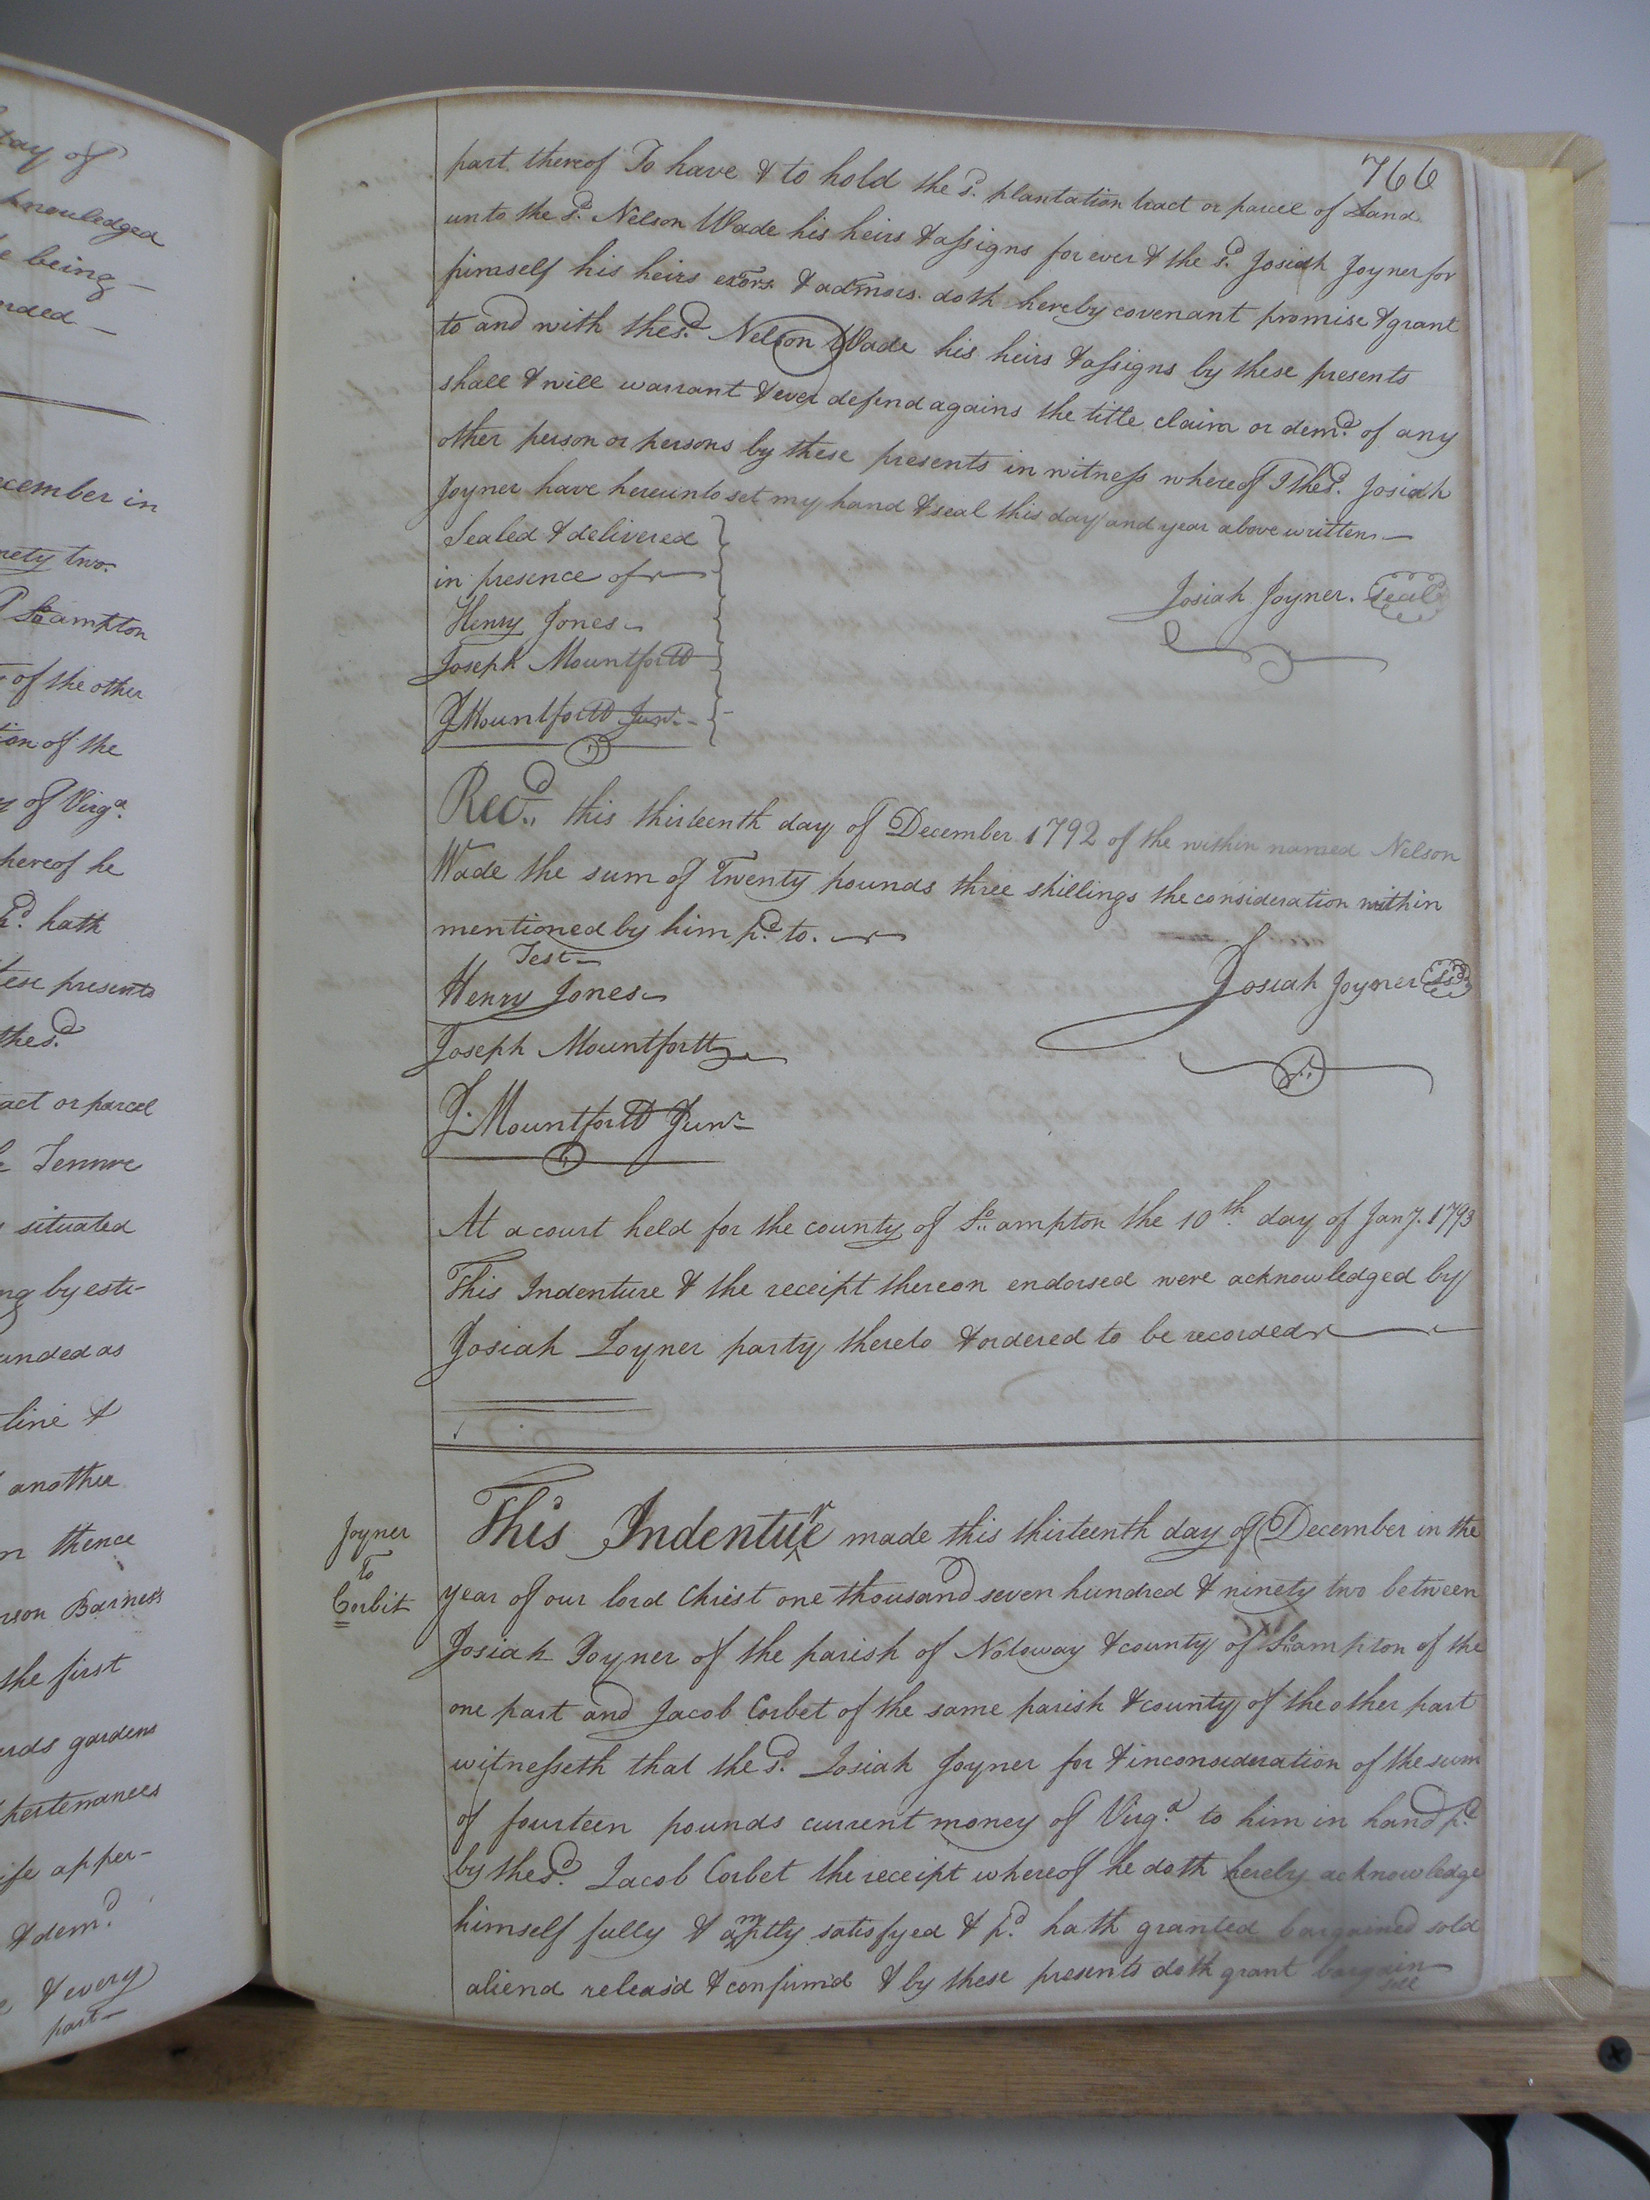 tay of
knowledged
e being
nded
cember in
nety two
So.ampton
of the other
ion of the
of Virga.
hereof he
d. hath
ese presents
the sd.
act or parcel
Tenure
situated
ng by esti-
unded as
line &
another
n thence
rson Barness
the first
rds gardens
pertenances
ise apper-
& demd.
& every
part
766
part thereof To have & to hold the sd. plantation tract or parcel of Land
unto the sd. Nelson Wade his heirs & assigns forever & the sd. Josiah Joyner for
himself his heirs exors. & admors. doth hereby covenant promise & grant
to and with the sd. Nelson Wade his heirs & assigns by these presents
shall & will warrant & ever defend agains the title claim or demd. of any
other person or persons by these presents in witness whereof I the sd. Josiah
Joyner have hereunto set my hand & seal this day and year above written
Sealed & delivered
in presence of
Josiah Joyner. seal
Henry Jones
Joseph Mountfortt
J Mountfortt Junr.
Recd. this thirteenth day of December 1792 of the within named Nelson
Wade the sum of Twenty pounds three shillings the consideration within
mentioned by him pd. to.
Test
Henry Jones
Josiah Joyner Ls
Joseph Mountfortt
J. Mountfortt Junr
At a court held for the county of So.ampton the 10th. day of Jany. 1793
This Indenture & the receipt thereon endorsed were acknowledged by
Josiah Joyner party thereto & ordered to be recorded
Joyner
To
Corbit
This Indenture made this thirteenth day of December in the
year of our lord Christ one thousand seven hundred & ninety two between
Josiah Joyner of the parish of Notoway & county of So.ampton of the
one part and Jacob Corbet of the same parish & county of the other part
witnesseth that the sd. Josiah Joyner for & in consideration of the sum
of fourteen pounds current money of Virga. to him in hand pd.
by the sd. Jacob Corbet the receipt whereof he doth herely acknowledge
himself fully & amptly satisfyed & pd. hath granted bargained sold
aliend releas'd & confirm'd & by these presents doth grant bargain
sell